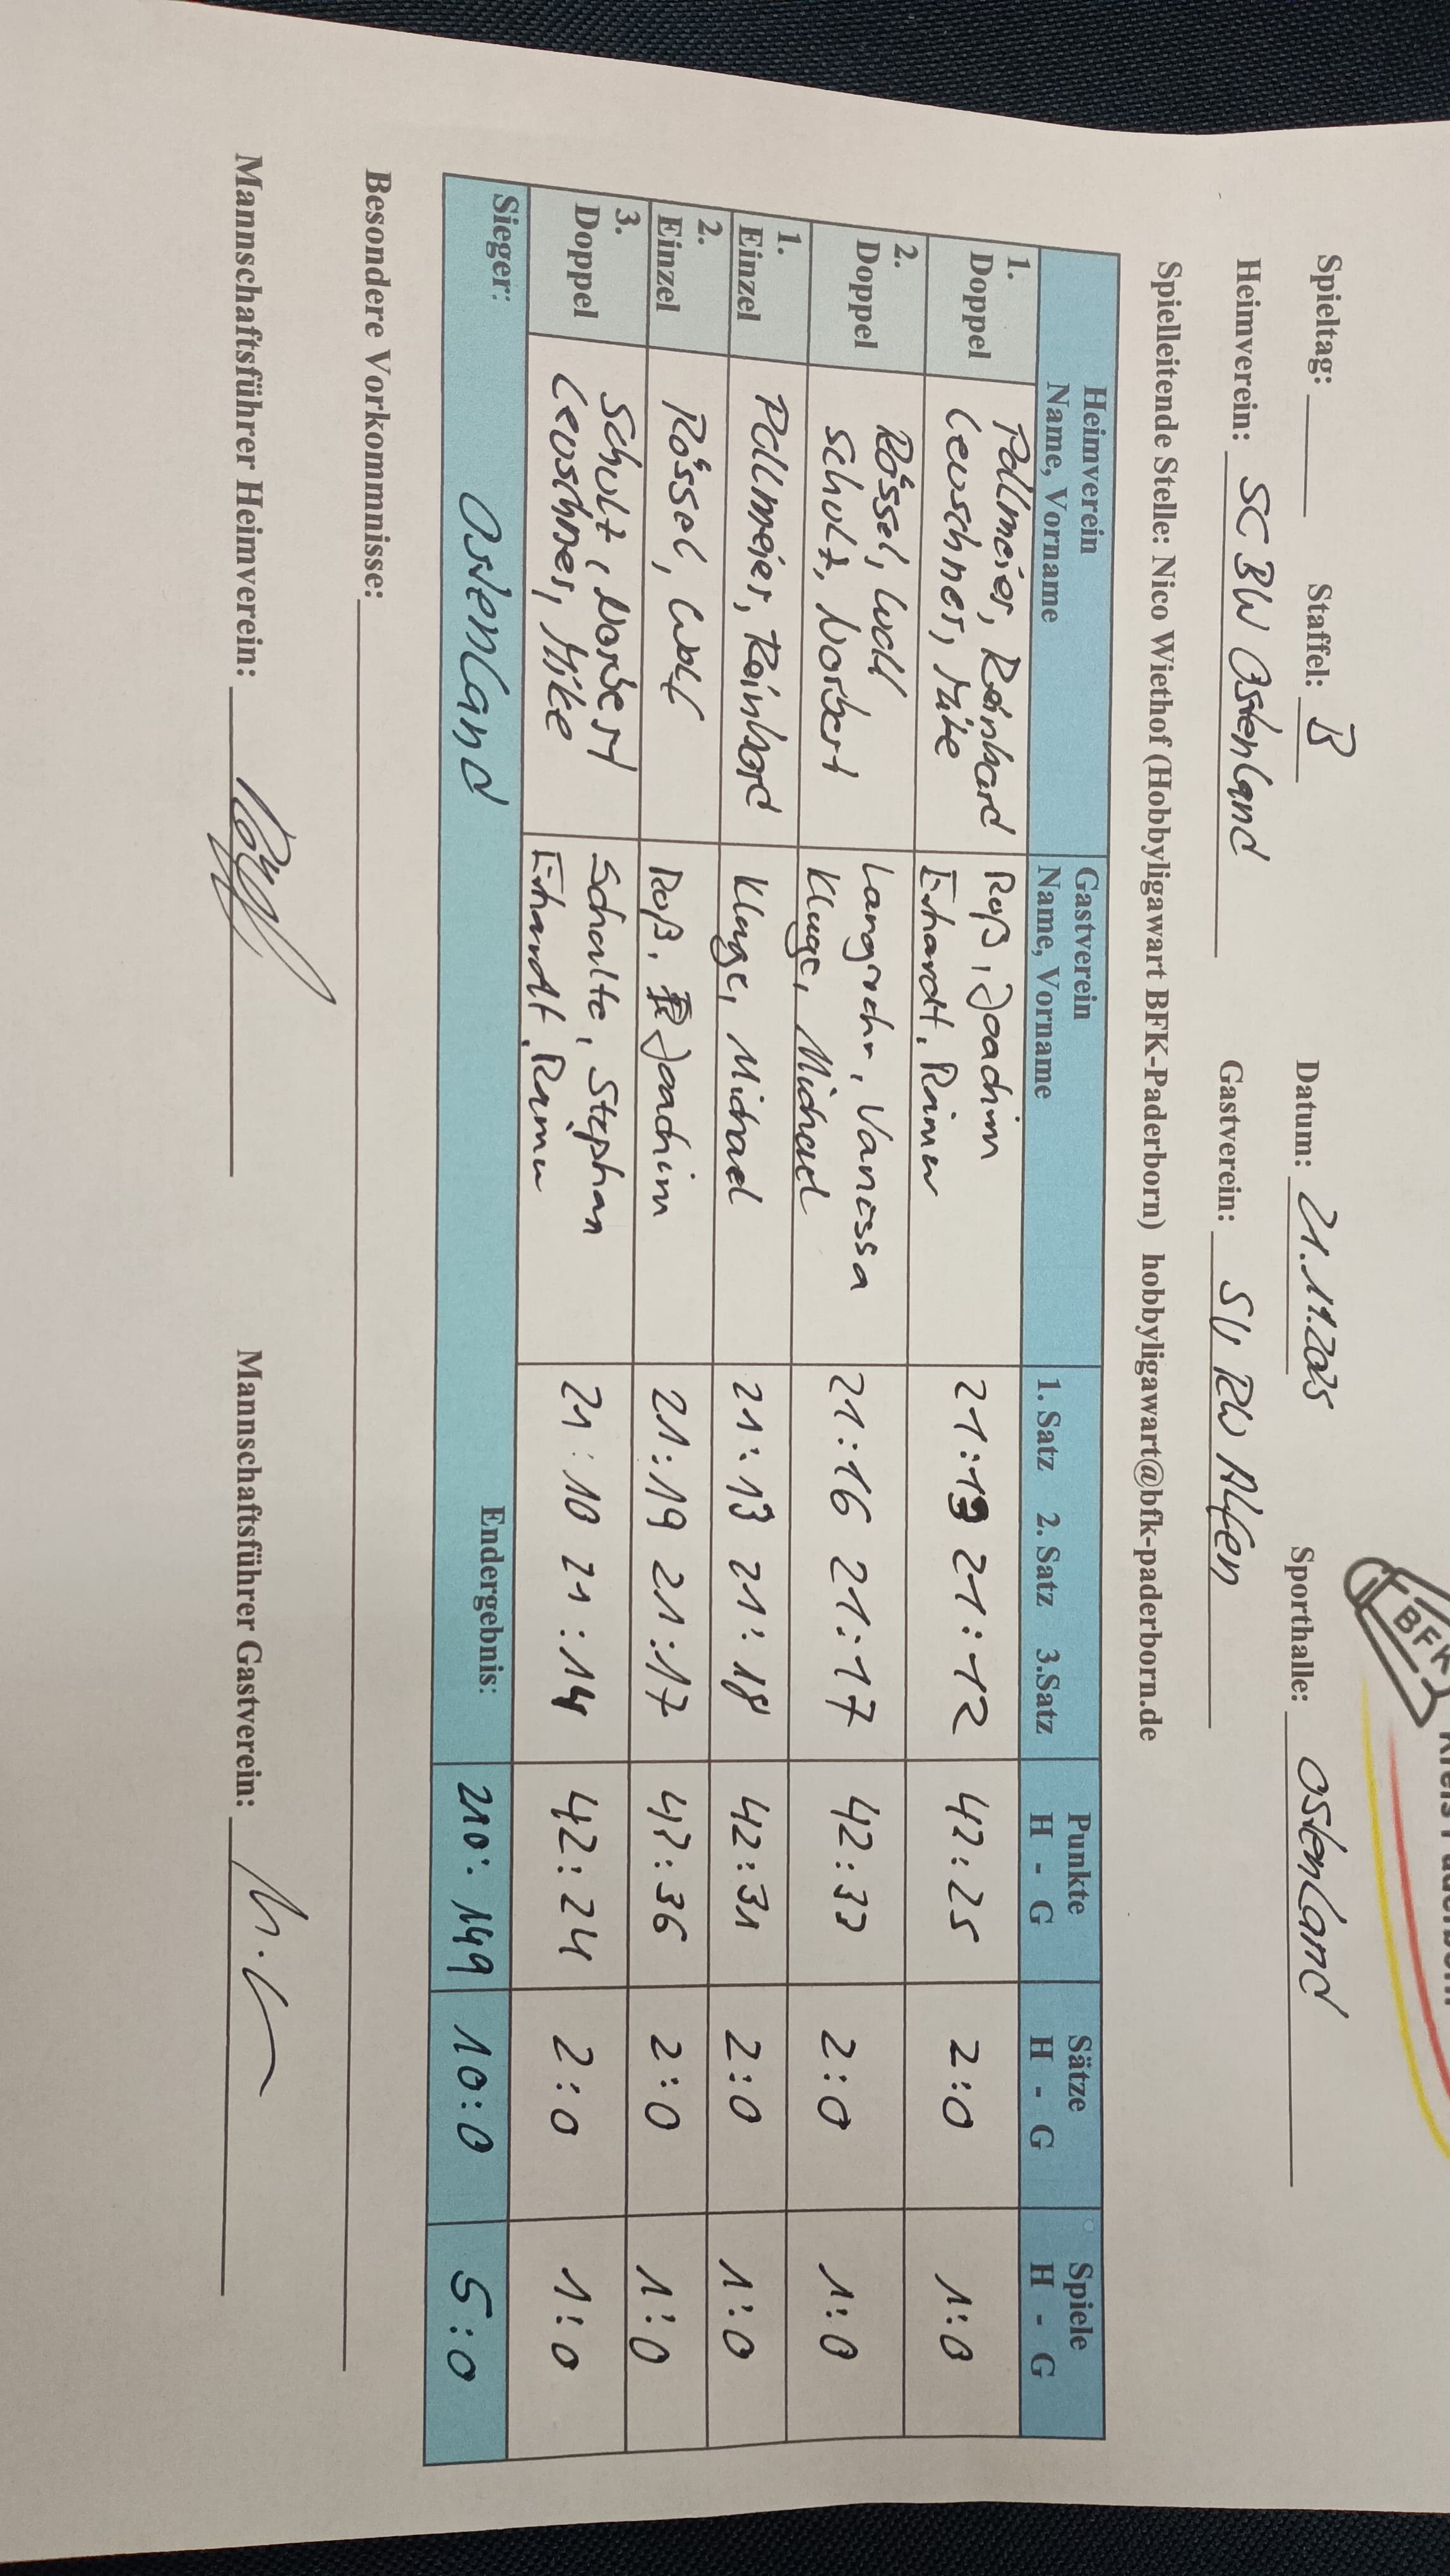 BFK
Spieltag: Staffel: B Datum: 21.11.2025 Sporthalle: Ostenland
Heimverein: SC BW Ostenland Gastverein: SV RW Alfen
Spielleitende Stelle: Nico Wiethof (Hobbyligawart BFK-Paderborn) hobbyligawart@bfk-paderborn.de
Heimverein Gastverein Punkte Sätze Spiele
Name, Vorname Name, Vorname 1. Satz 2. Satz 3.Satz H - G H - G H - G
1. Pollmeier, Reinhard Roß, Joachim
Doppel Leuschner, Mike Erhardt, 21:13 21:12 42:25 2:0 1:0
2. Rössel, Langrehr, Vanessa
Doppel Schulz, Norbert Kluge, Michael 21:16 21:17 42:33 2:0 1:0
1.
Einzel Pollmeier, Reinhard Kluge, Michael 21:13 21:18 42:31 2:0 1:0
2.
Einzel Rössel, Roß, Joachim 21:19 21:17 42:36 2:0 1:0
3. Schulz, Norbert Schulte, Stephan
Doppel Leuschner, Mike Erhardt, 21:10 21:14 42:24 2:0 1:0
Sieger: Ostenland Endergebnis: 210:149 10:0 5:0
Besondere Vorkommnisse:
Mannschaftsführer Heimverein: Mannschaftsführer Gastverein: